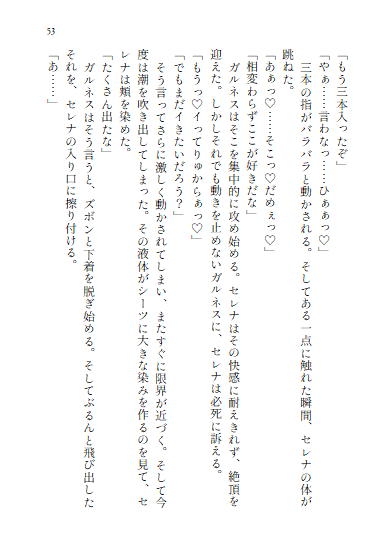 53
「もう三本入ったぞ」
「やぁ……言わなっ……ひぁぁっ♡」
　三本の指がバラバラと動かされる。そしてある一点に触れた瞬間、セレナの体が
跳ねた。
「あぁっ♡……そこっ♡だめぇっ♡」
「相変わらずここが好きだな」
　ガルネスはそこを集中的に攻め始める。セレナはその快感に耐えきれず、絶頂を
迎えた。しかしそれでも動きを止めないガルネスに、セレナは必死に訴える。
「もうっ♡イってりゅからぁっ♡」
「でもまだイきたいだろう？」
　そう言ってさらに激しく動かされてしまい、またすぐに限界が近づく。そして今
度は潮を吹き出してしまった。その液体がシーツに大きな染みを作るのを見て、セ
レナは頬を染めた。
「たくさん出たな」
　ガルネスはそう言うと、ズボンと下着を脱ぎ始める。そしてぶるんと飛び出した
それを、セレナの入り口に擦り付ける。
「あ……」